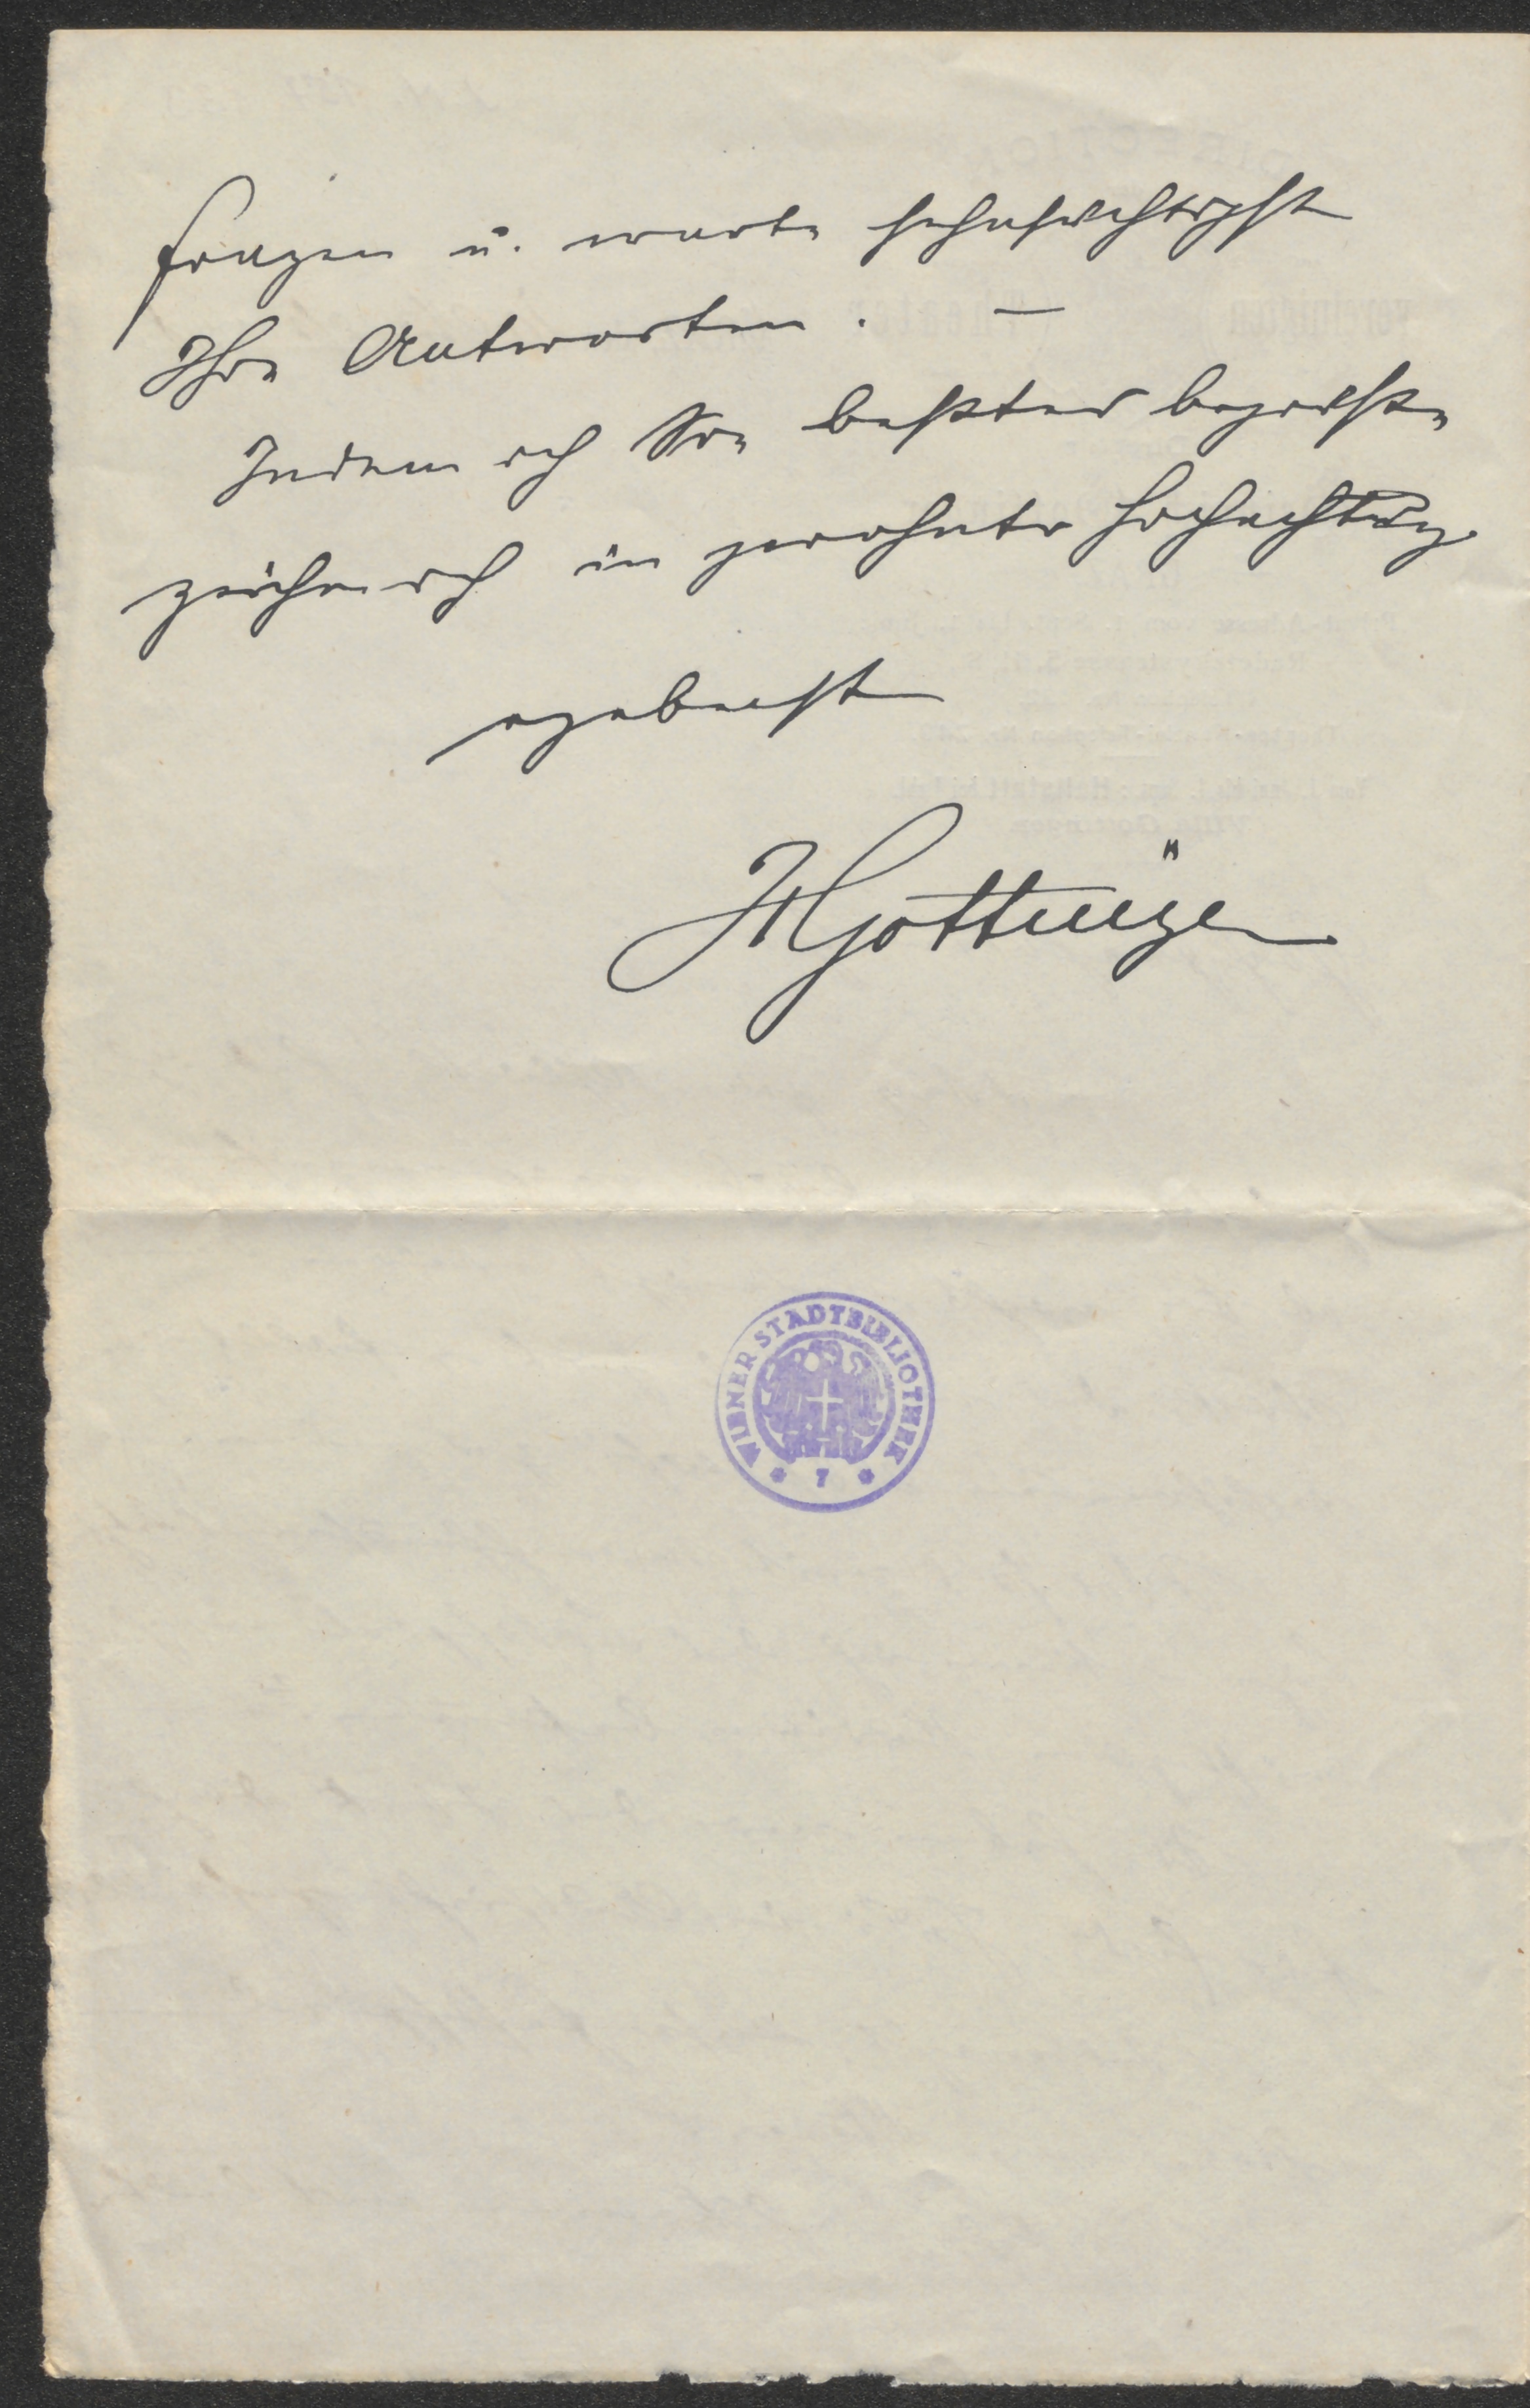 fragen u. warte sehnsüchtigst
Ihre Antworten. —
Indem ich Sie bestens begrüße
zeichne ich in gewohnter Hochachtung
ergebenst
HGöttinger
WIENER STADTBIBLIOTHEK
* 7 *